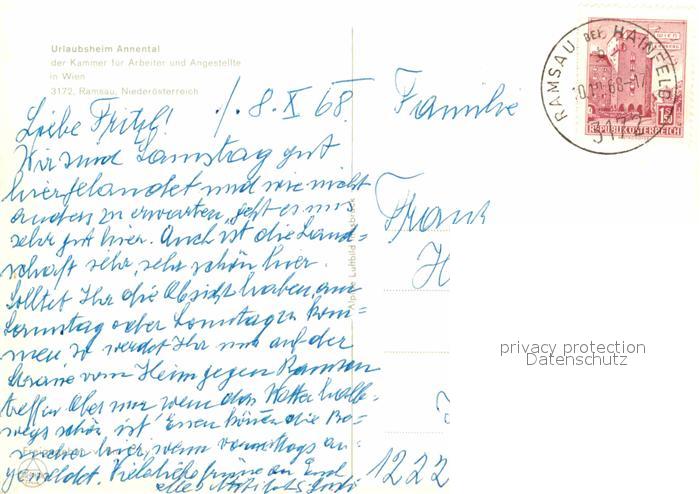 Urlaubsheim Annental
der Kammer für Arbeiter und Angestellte
in Wien
3172, Ramsau, Niederösterreich
Liebe Fritzl! 8. X 68.
Wir sind Samstag gut
hier gelandet und wie nicht
anders zu erwarten, geht es uns
sehr gut hier. Auch ist die Land=
schaft sehr, sehr schön hier.
Solltet Ihr die Absicht haben, am
Samstag oder Sonntag zu kom=
men so werdet Ihr uns auf der
Straße vom Heim gegen Ramsau
treffen. Aber nur wenn das Wetter halb=
wegs schön ist. Essen können die Be=
sucher hier, wenn vormittags an=
gemeldet. Viele liebe Grüsse an Euch
alle
Familie
Frank
H
1222
Alpine Luftbild Innsbruck
RAMSAU BEI HAINFELD
3172
WIEN
REPUBLIK ÖSTERREICH
privacy protection
Datenschutz